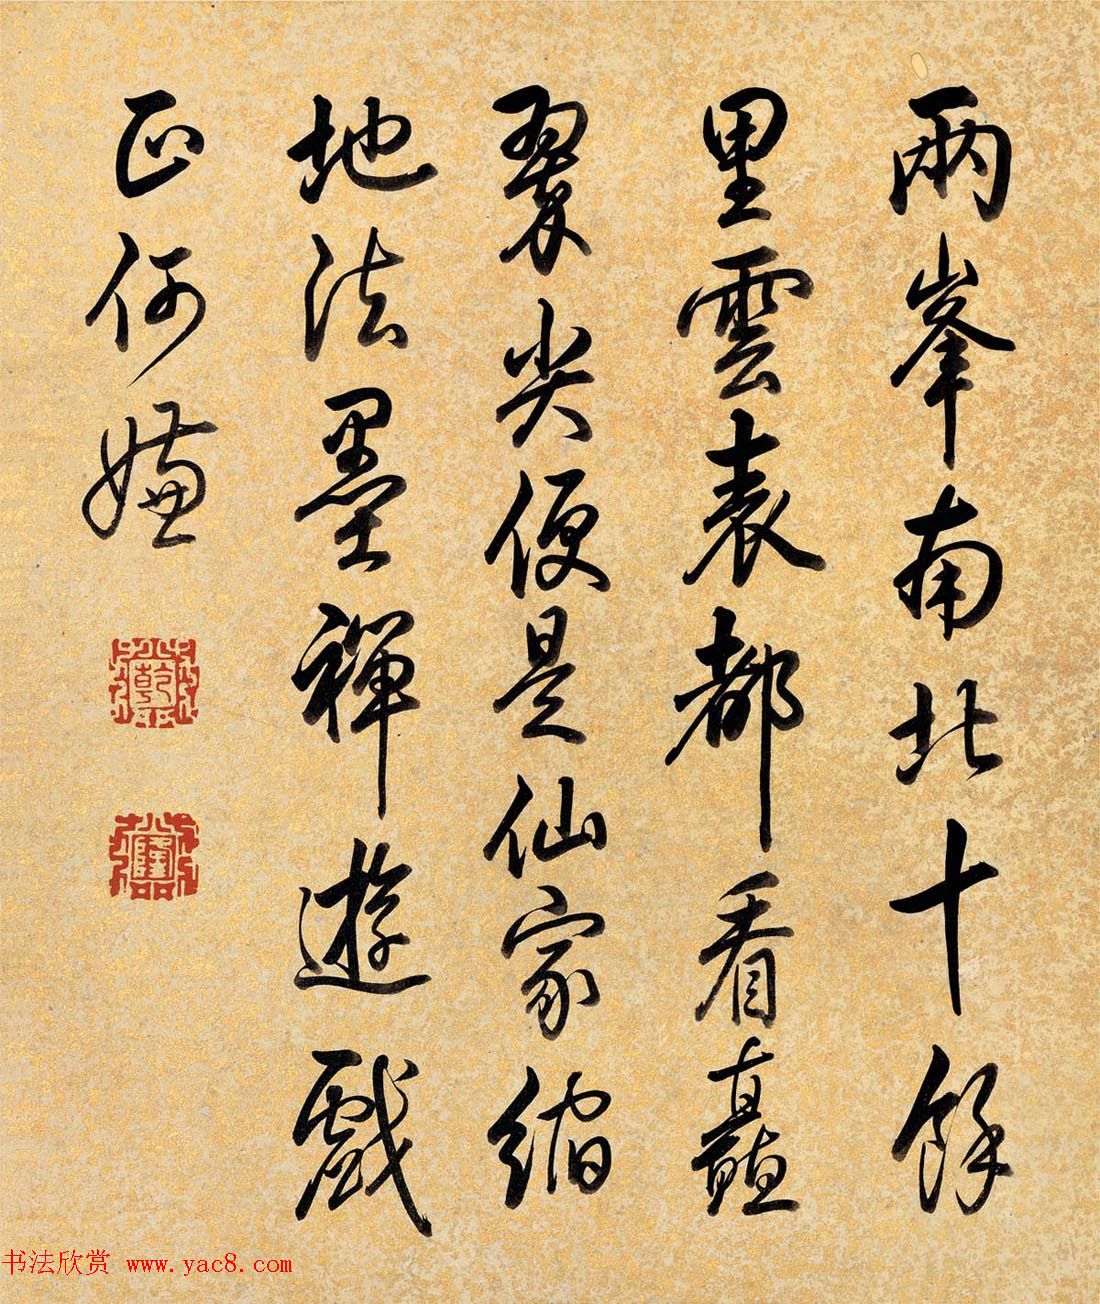 兩峯南北十餘
里雲表都看矗
翠尖便是仙家縮
地法墨禪遊戲
正何嫌
乾
隆
书法欣赏 www.yac8.com